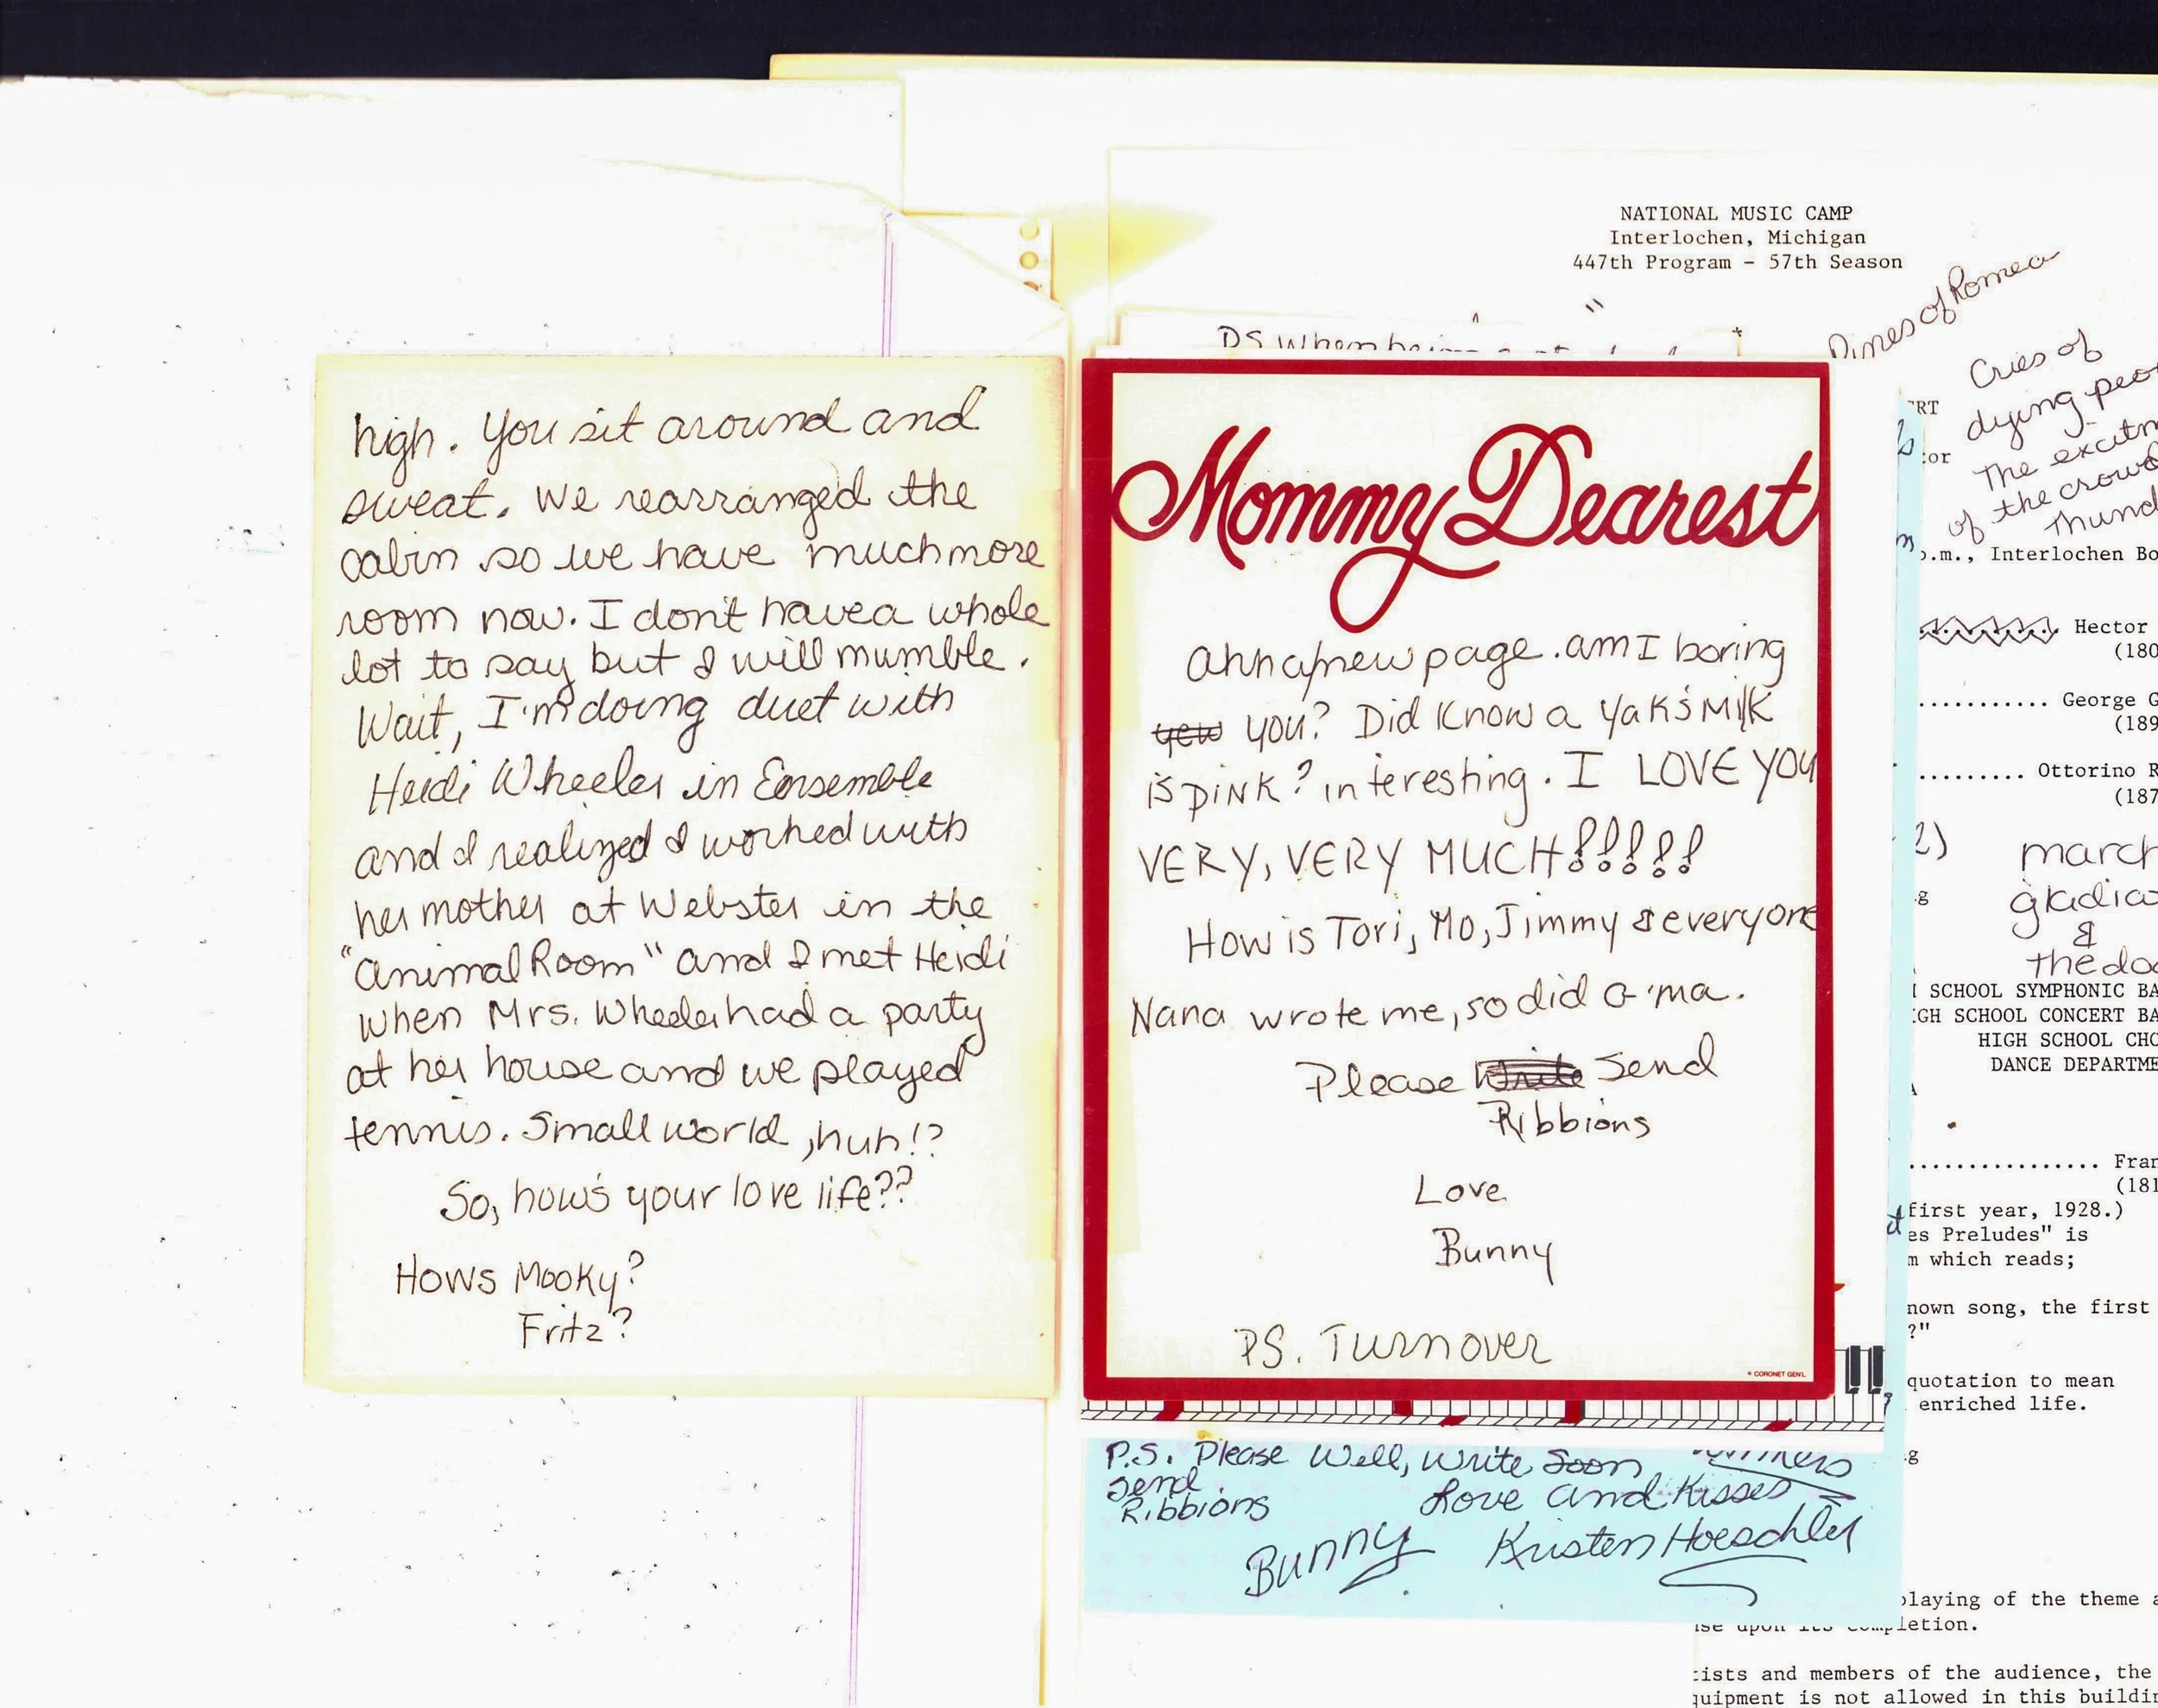 high. You sit around and
sweat. We rearranged the
cabin so we have much more
room now. I don't have a whole
lot to say but I will mumble.
Wait, I'm doing duet with
Heidi Wheeler in Ensemble
and I realized I worked with
her mother at Webster in the
"Animal Room" and I met Heidi
when Mrs. Wheeler had a party
at her house and we played
tennis. Small world, huh!?
So, how's your love life??
Hows Mooky?
Fritz?
Mommy Dearest
ahh a new page. am I boring
yew you? Did Know a Yak's Milk
is pink? interesting. I LOVE YOU
VERY, VERY MUCH!!!!!
How is Tori, Mo, Jimmy & everyone
Nana wrote me, so did G'ma.
Please write Send
Ribbions
Love
Bunny
PS. Turnover
© CORONET GEN'L
P.S. Please
send
Ribbions
Well, Write Soon
Love and Kisses
Bunny Kristen Hoeschler
NATIONAL MUSIC CAMP
Interlochen, Michigan
447th Program - 57th Season
Pines of Romea
Cries of
dying
The
of the crowd
.m., Interlochen
Hector
(180
George G
(189
Ottorino R
(187
march
&
the
SCHOOL SYMPHONIC BA
GH SCHOOL CONCERT BA
HIGH SCHOOL CHO
DANCE DEPARTME
Fran
(181
first year, 1928.)
es Preludes" is
which reads;
nown song, the first
?"
quotation to mean
enriched life.
playing of the theme
upon its completion.
ists and members of the audience, the
quipment is not allowed in this buildin